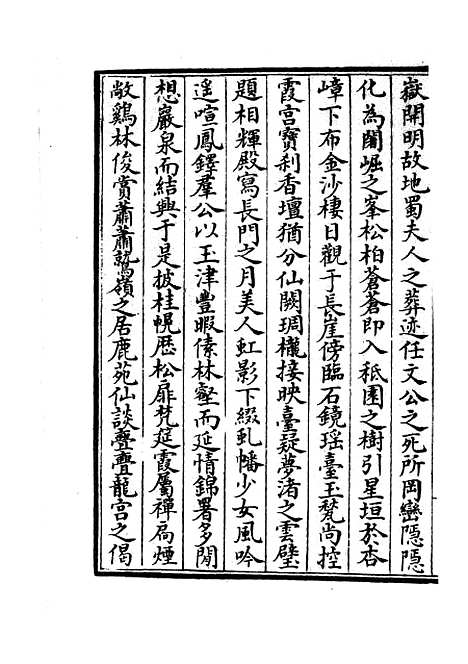 嶽開明故地蜀夫人之葬迹任文公之死所岡巒隱隱
化為闍崛之峯松柏蒼蒼即入秖園之樹引星垣於杏
嶂下布金沙棲日觀于長崖傍臨石鏡瑶臺玉甃尚控
霞宫寶刹香壇猶分仙闕琱櫳接映臺疑夢渚之雲璧
題相輝殿寫長門之月美人虹影下綴虬幡少女風吟
遥喧鳳鐸羣公以玉津豐暇傃林壑而延情錦署多閒
想巖泉而結興于是披桂幌歴松扉梵筵霞屬禪扃煙
敞鷄林俊賞蕭蕭鷲嶺之居鹿苑仙談亹亹龍宫之偈